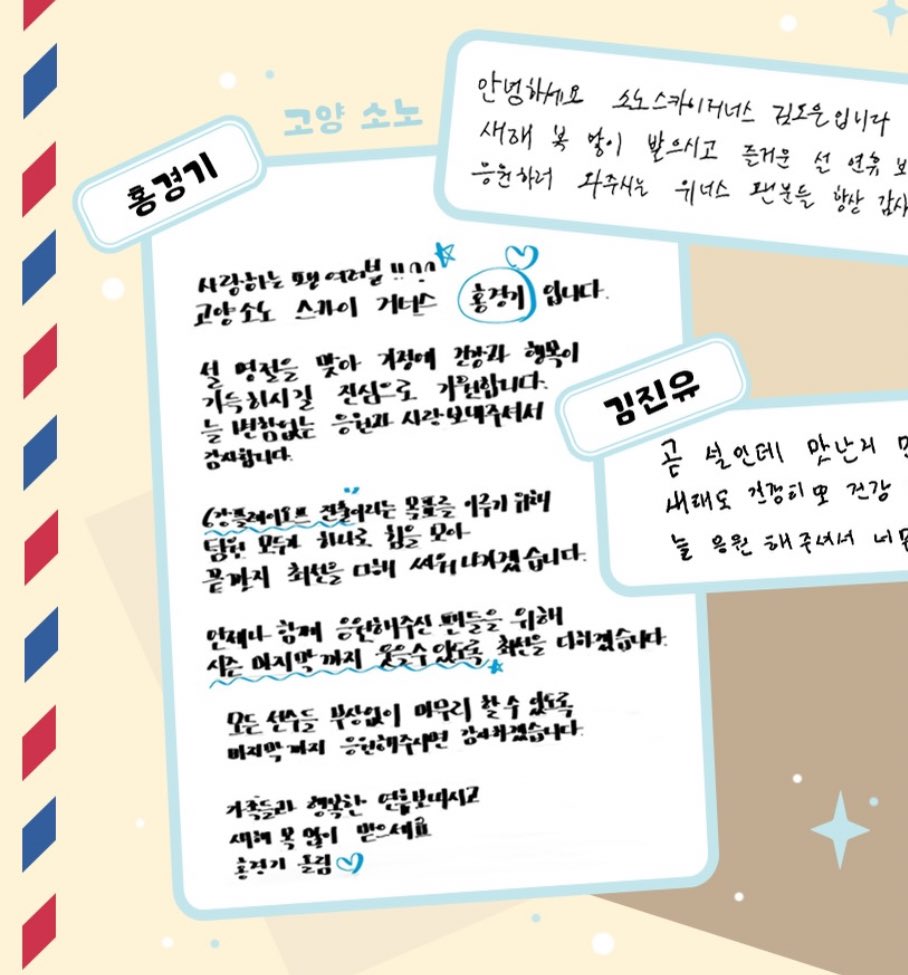 고양 소노
안녕하세요 소노스카이거너스 김도은입니다
새해 복 많이 받으시고 즐거운 설 연휴 보
응원하러 와주시는 위너스 팬분들 항상 감사
홍경기
사랑하는 팬 여러분 !! ^^
고양 소노 스카이 거너스 홍경기 입니다.
설 명절을 맞아 가정에 건강과 행복이
가득하시길 진심으로 기원합니다.
늘 변함없는 응원과 사랑 보내주셔서
감사합니다.
6강 플레이오프 진출이라는 목표를 이루기 위해
팀원 모두가 하나로 힘을 모아
끝까지 최선을 다해 싸워 나가겠습니다.
언제나 함께 응원해주신 팬들을 위해
시즌 마지막까지 웃을 수 있도록 최선을 다하겠습니다.
모든 선수들 부상없이 마무리 할 수 있도록
마지막까지 응원해주시면 감사하겠습니다.
가족들과 행복한 연휴보내시고
새해 복 많이 받으세요
홍경기 올림
김진유
곧 설인데 맛난거
새해도 건강히 또 건강
늘 응원 해주셔서 너무